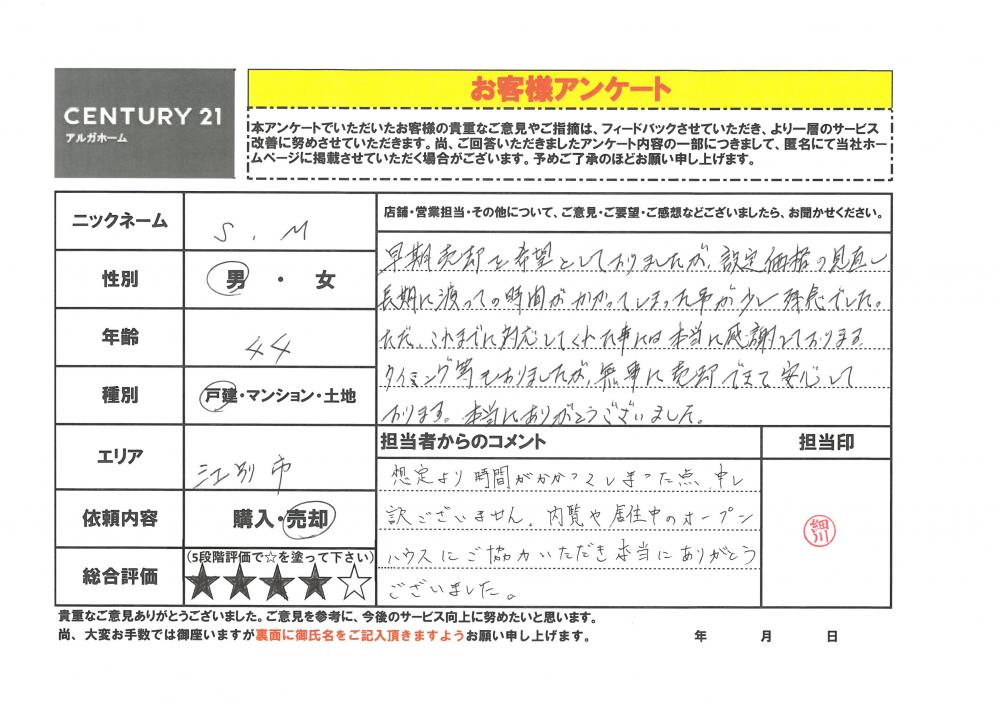 CENTURY 21
アルガホーム
お客様アンケート
本アンケートでいただいたお客様の貴重なご意見やご指摘は、フィードバックさせていただき、より一層のサービス
改善に努めさせていただきます。尚、ご回答いただきましたアンケート内容の一部につきまして、匿名にて当社ホー
ムページに掲載させていただく場合がございます。予めご了承のほどお願い申し上げます。
ニックネーム
S.M
性別
男・女
年齢
44
種別
戸建・マンション・土地
エリア
江別市
依頼内容
購入・売却
総合評価
(5段階評価で☆を塗って下さい)
★★★★☆
店舗・営業担当・その他について、ご意見・ご要望・ご感想などございましたら、お聞かせください。
早期売却を希望としておりましたが、設定価格の見直し
長期に渡っての時間がかかってしまった事が少し残念でした。
ただ、これまでに対応してくれた事には本当に感謝しております
タイミング等もありましたが、無事に売却できて安心して
おります。本当にありがとうございました。
担当者からのコメント
想定より時間がかかってしまった点、申し
訳ございません。内覧や居住中のオープン
ハウスにご協力いただき本当にありがとう
ございました。
担当印
細川
貴重なご意見ありがとうございました。ご意見を参考に、今後のサービス向上に努めたいと思います。
尚、大変お手数では御座いますが裏面に御氏名をご記入頂きますようお願い申し上げます。
年 月 日